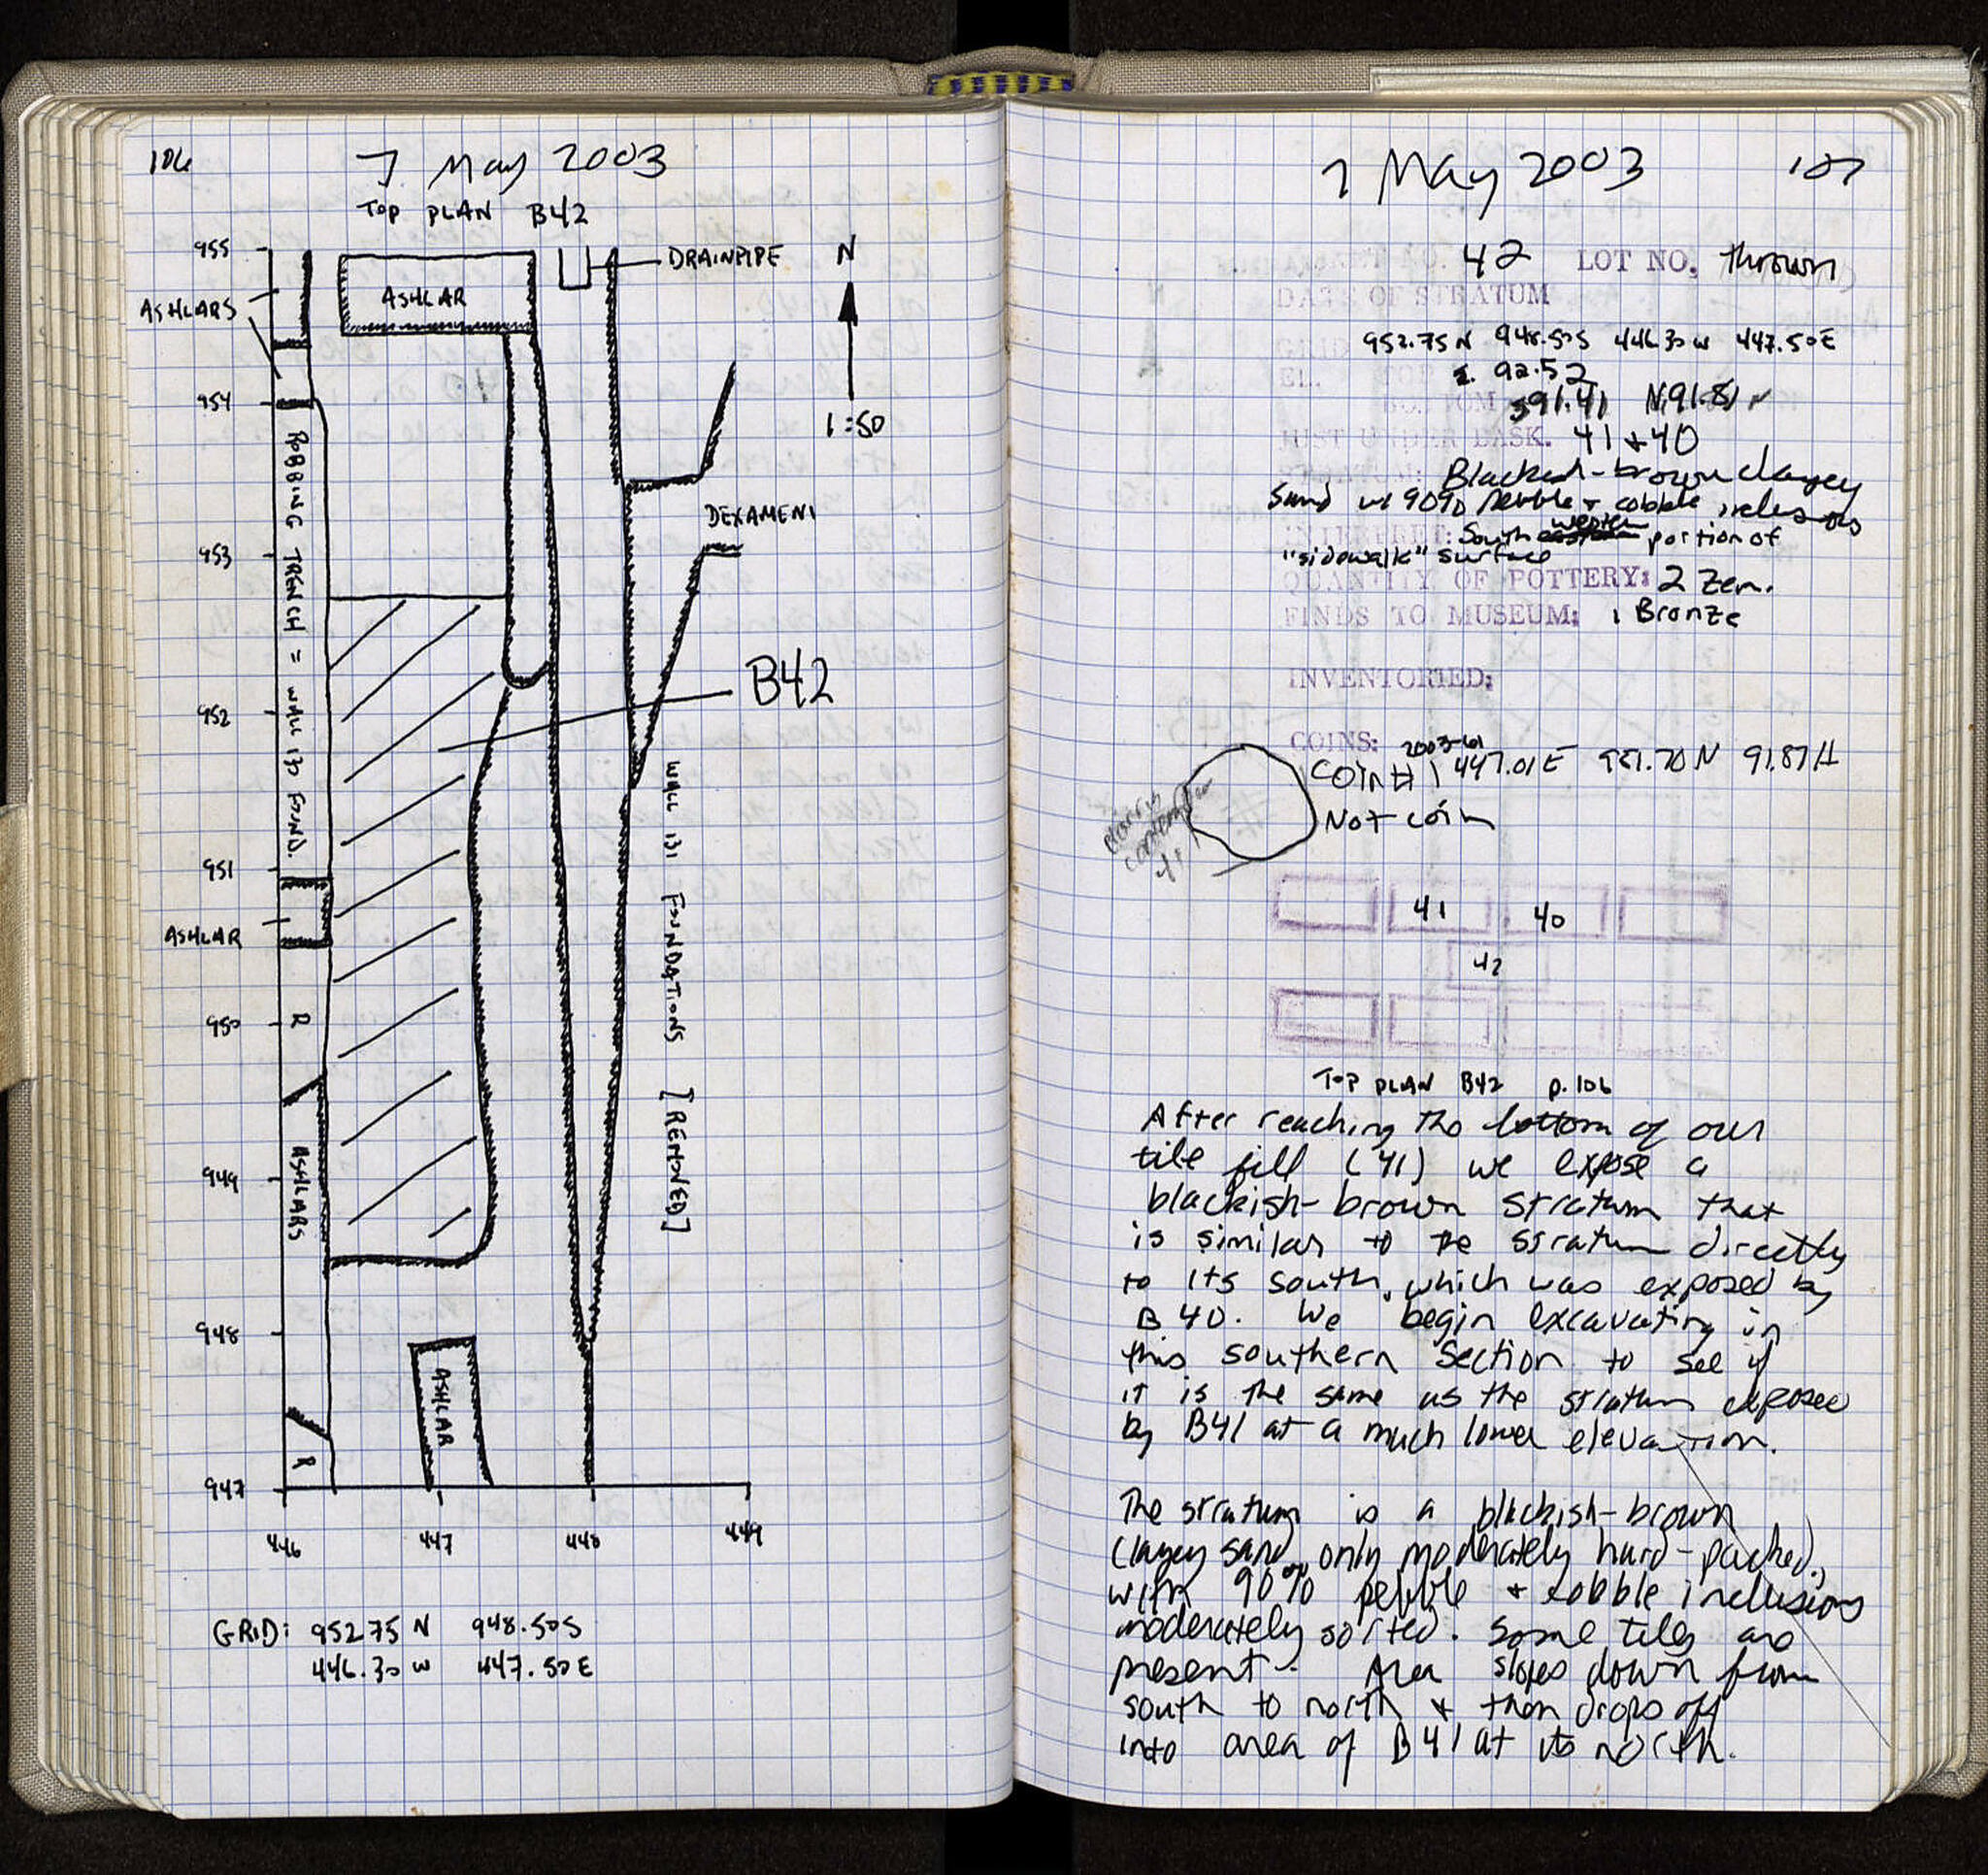 106
7 May 2003
TOP PLAN B42
955
954
953
952
951
950
949
948
947
446
447
448
449
ASHLARS
ASHLAR
DRAINPIPE
N
1:50
ROBBING TRENCH = WALL 133 FOUND.
DEXAMENI
B42
WALL 131 FOUNDATIONS [REMOVED]
ASHLAR
R
ASHLARS
ASHLAR
R
GRID: 952.75 N 948.50 S
446.30 W 447.50 E
7 May 2003
107
42 LOT NO. thrown
DATE OF STRATUM
GRID 952.75 N 948.50 S 446.30 W 447.50 E
EL. TOP 92.52
BOTTOM S91.41 N91.81
JUST UNDER BASK. 41 + 40
STRATUM: Blackish-brown clayey
sand w/ 90% pebble + cobble inclusions
INTERPRET: South western portion of
"sidewalk" surface
QUANTITY OF POTTERY: 2 zem.
FINDS TO MUSEUM: 1 Bronze
INVENTORIED:
COINS: 2003-61
COIN # 1 447.01 E 951.70 N 91.87 H
Not coin
41
40
42
TOP PLAN B42 p. 106
After reaching the bottom of our
tile fill (41) we expose a
blackish-brown stratum that
is similar to the stratum directly
to its south, which was exposed by
B 40. We begin excavating in
this southern section to see if
it is the same as the stratum exposed
by B41 at a much lower elevation.
The stratum is a blackish-brown
clayey sand, only moderately hard-packed,
with 90% pebble + cobble inclusions
moderately sorted. Some tiles are
present. Area slopes down from
south to north & then drops off
into area of B41 at its north.